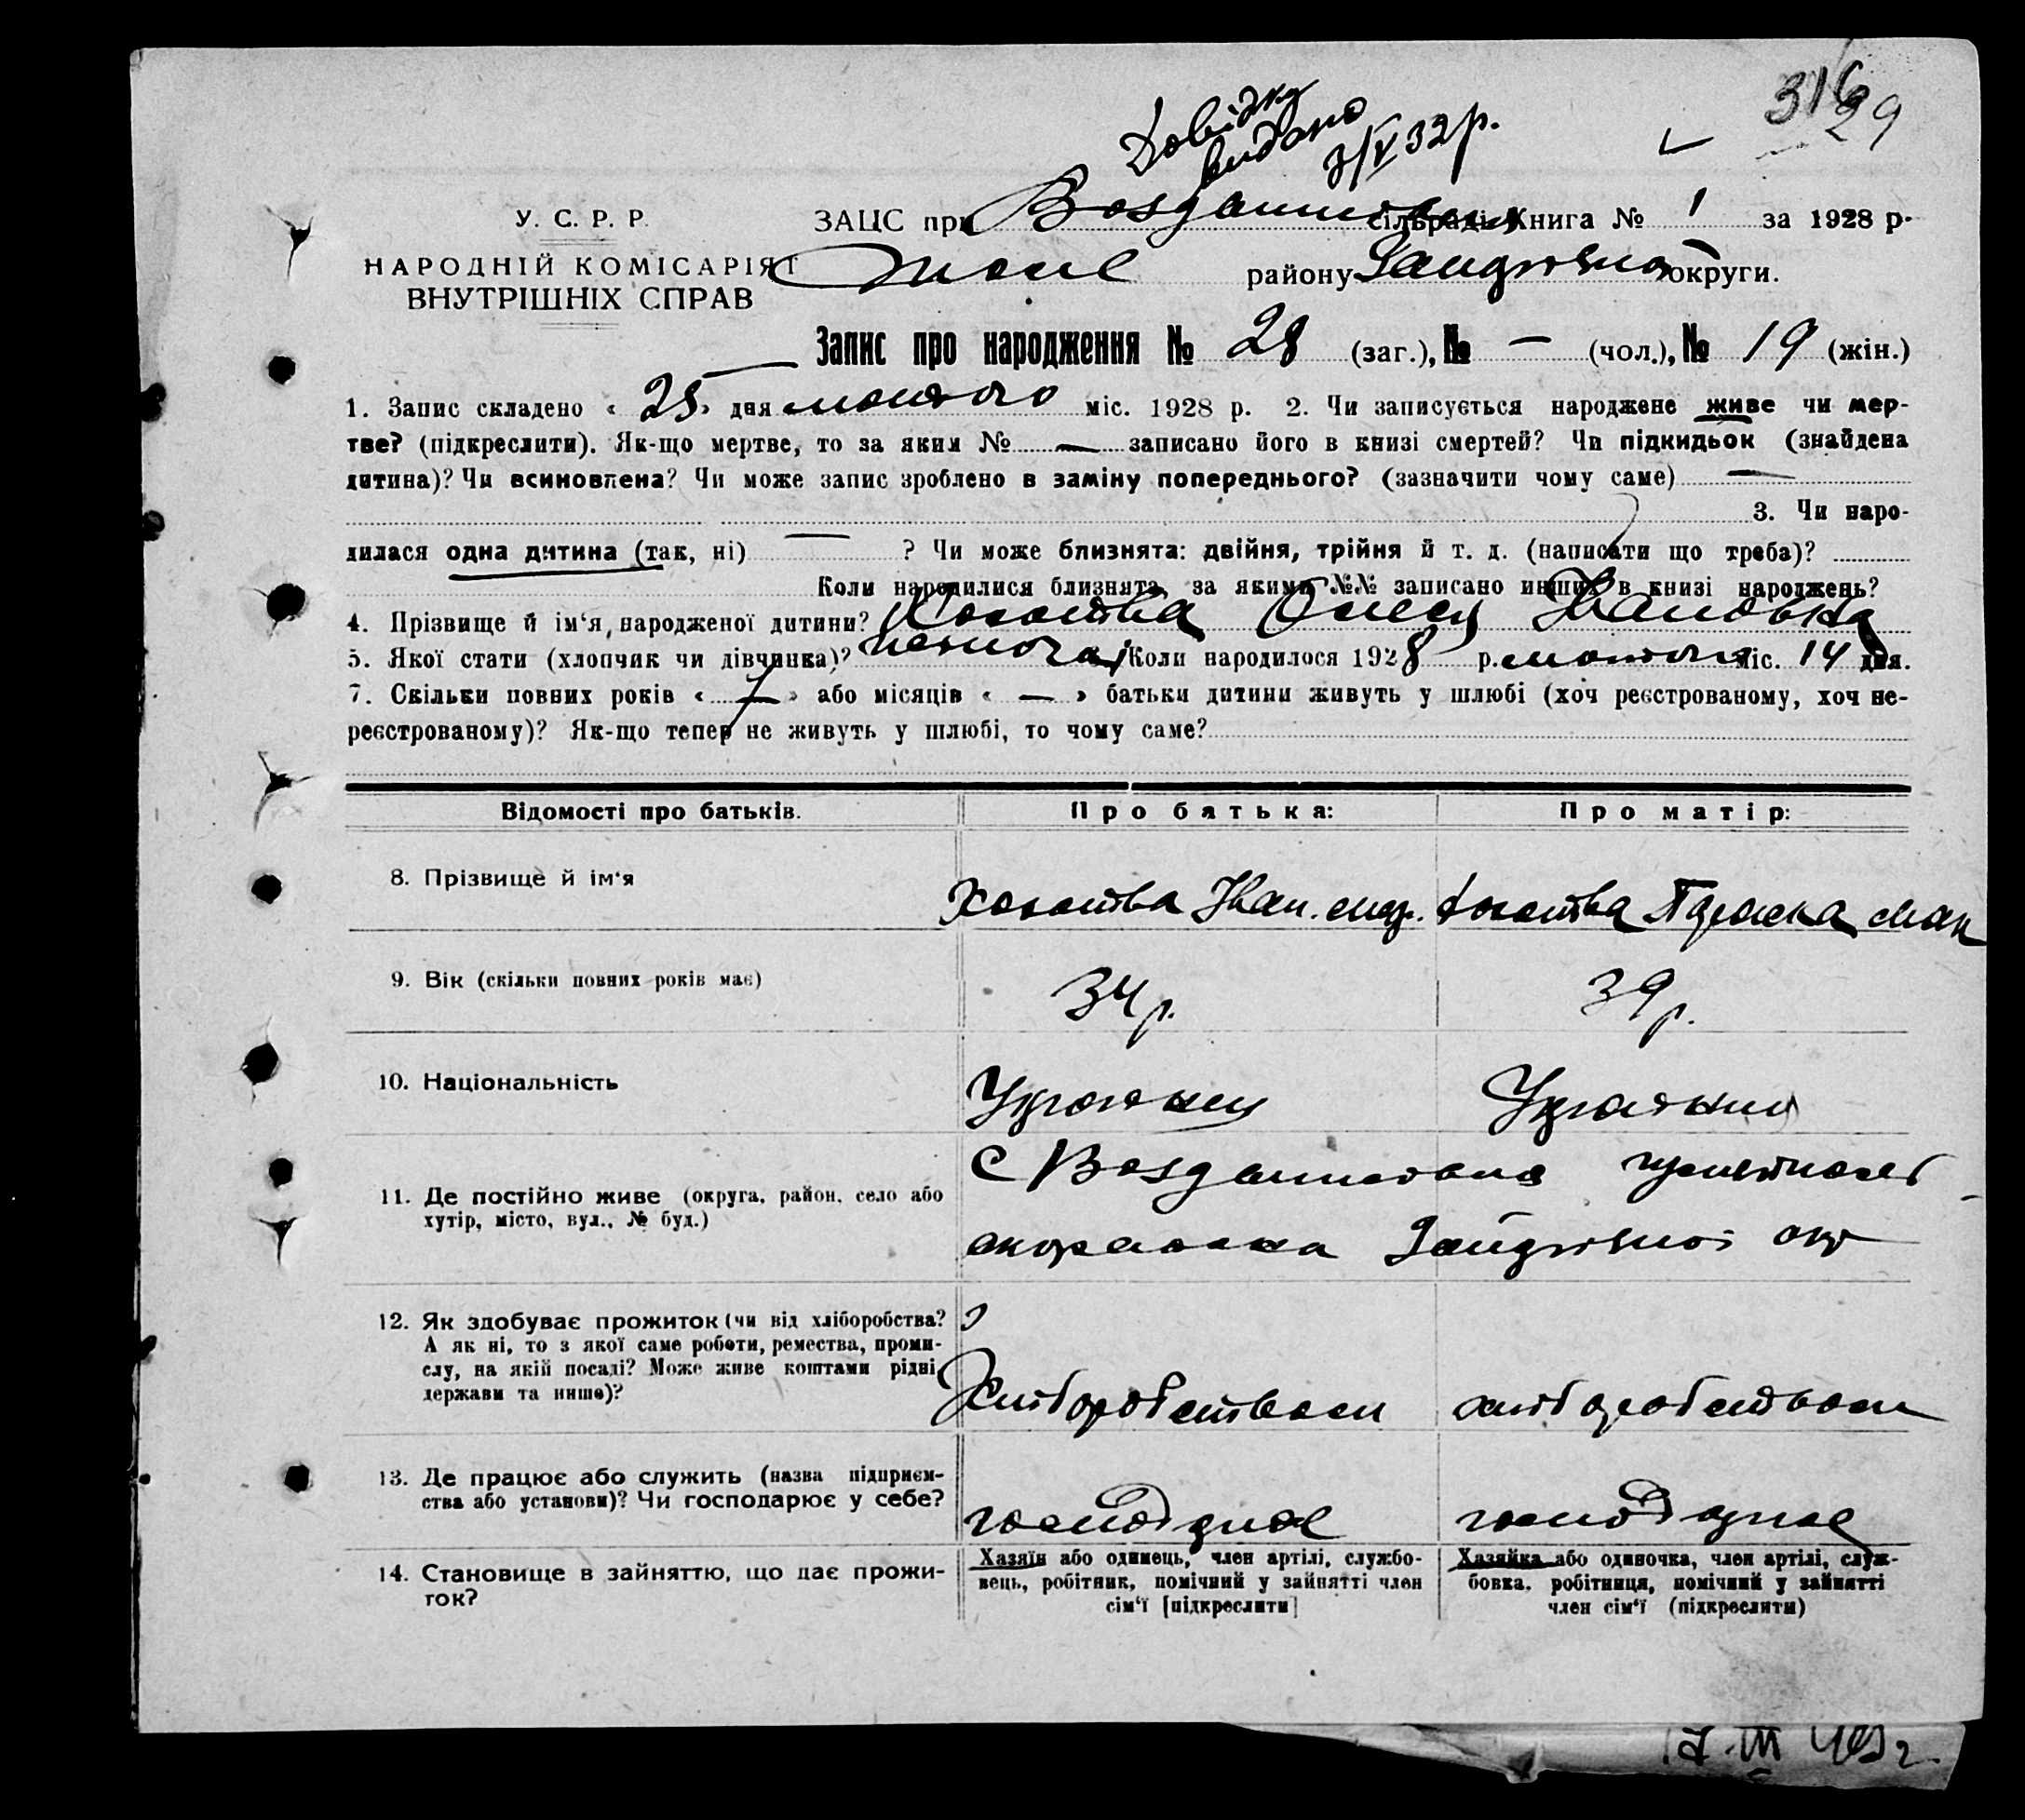 316
29
Довідку
видано
3/V 32 р.
У. С. Р. Р.
НАРОДНІЙ КОМІСАРІЯТ
ВНУТРІШНІХ СПРАВ
ЗАЦС при сільраді Книга № 1 за 1928 р.
району округи.
Запис про народження № 28 (заг.), № — (чол.), № 19 (жін.)
1. Запис складено « 25 » дня лютого міс. 1928 р. 2. Чи записується народжене живе чи мер-
тве? (підкреслити). Як-що мертве, то за яким № — записано його в книзі смертей? Чи підкидьок (знайдена
дитина)? Чи всиновлена? Чи може запис зроблено в заміну попереднього? (зазначити чому саме) —
3. Чи наро-
дилася одна дитина (так, ні) — ? Чи може близнята: двійня, трійня й т. д. (написати що треба)?
Коли народилися близнята, за якими №№ записано инших в книзі народжень?
4. Прізвище й ім‘я народженої дитини? Івановна
5. Якої стати (хлопчик чи дівчинка)? Коли народилося 1928 р. лютого міс. 14 дня.
7. Скільки повних років « 7 » або місяців « — » батьки дитини живуть у шлюбі (хоч реєстрованому, хоч не-
реєстрованому)? Як-що тепер не живуть у шлюбі, то чому саме?
Відомості про батьків.
Про батька:
Про матір:
8. Прізвище й ім‘я
Іван
9. Вік (скільки повних років має)
34 р.
39 р.
10. Національність
Українец
11. Де постійно живе (округа, район, село або
хутір, місто, вул., № буд.)
С
окр
12. Як здобуває прожиток (чи від хліборобства?
А як ні, то з якої саме роботи, ремества, проми-
слу, на якій посаді? Може живе коштами рідні,
держави та инше)?
Хліборобством
хліборобством
13. Де працює або служить (назва підприєм-
ства або установи)? Чи господарює у себе?
14. Становище в зайняттю, що дає прожи-
ток?
Хазяїн або одинець, член артілі, службо-
вець, робітник, помічний у зайнятті член
сім‘ї [підкреслити]
Хазяйка або одиночка, член артілі, служ-
бовка, робітниця, помічний у зайнятті
член сім‘ї (підкреслити)